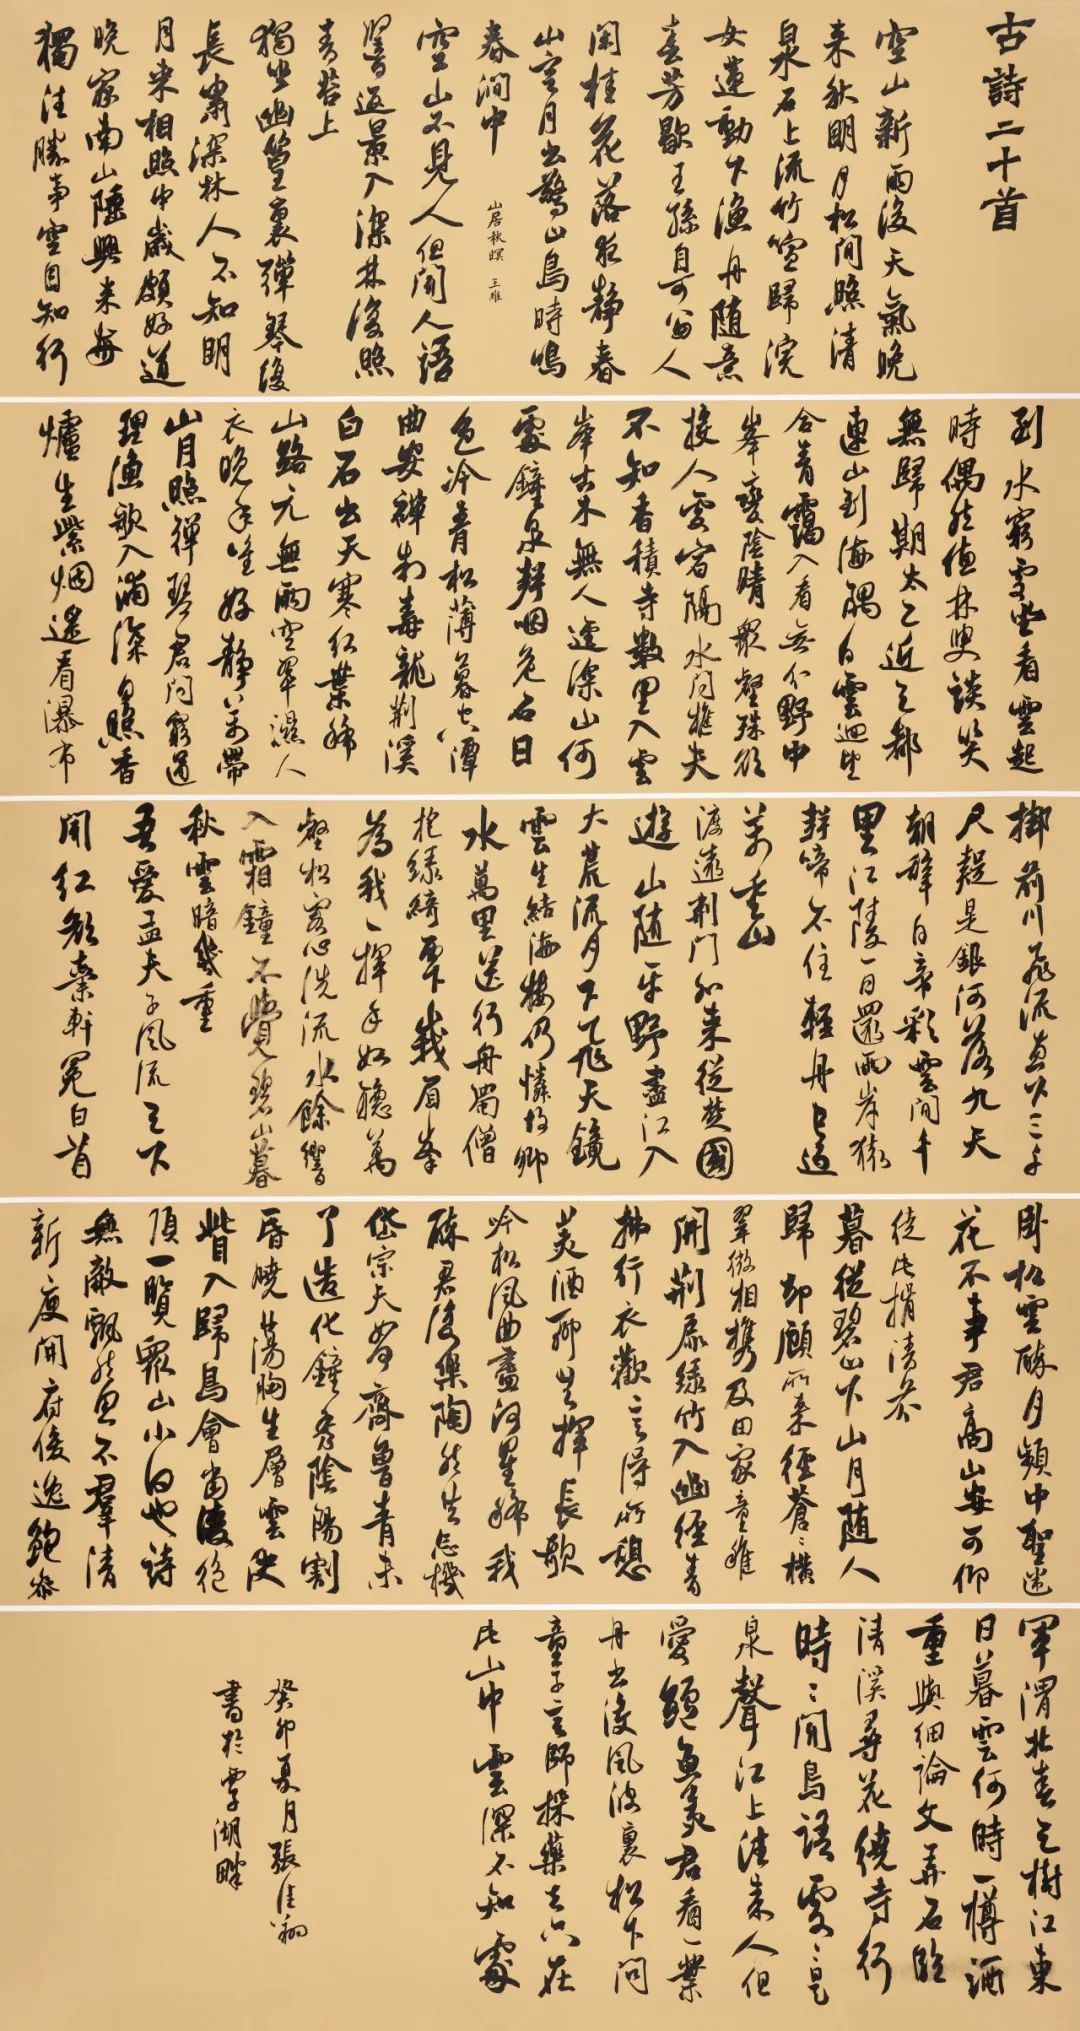 古詩二十首
空山新雨後天氣晚
来秋明月松間照清
泉石上流竹喧歸浣
女蓮動下漁舟随意
春芳歇王孫自可留人
閑桂花落夜静春
山空月出驚山鳥時鳴
春澗中
山居秋暝 王維
空山不見人但聞人語
響返景入深林復照
青苔上
獨坐幽篁裏彈琴復
長嘯深林人不知明
月来相照中歲頗好道
晚家南山陲興来每
獨往勝事空自知行
到水窮處坐看雲起
時偶然值林叟談笑
無歸期太乙近天都
連山到海隅白雲迴望
合青靄入看無分野中
峯變陰晴衆壑殊欲
投人處宿隔水問樵夫
不知香積寺數里入雲
峯古木無人逕深山何
處鐘泉聲咽危石日
色冷青松薄暮空潭
曲安禪制毒龍荆溪
白石出天寒红葉稀
山路元無雨空翠濕人
衣晚年唯好静松風吹解帶
山月照彈琴君問窮通
理漁歌入浦深日照香
爐生紫烟遥看瀑布
掛前川飛流直下三千
尺疑是銀河落九天
朝辭白帝彩雲間千
里江陵一日還兩岸猿
聲啼不住輕舟已過
萬重山
渡遠荆門外来從楚國
遊山随平野盡江入
大荒流月下飛天鏡
雲生結海樓仍憐故鄉
水萬里送行舟蜀僧
抱緑綺西下峨眉峯
為我一揮手如聽萬
壑松客心洗流水餘響
入霜鐘不覺碧山暮
秋雲暗幾重
吾愛孟夫子風流天下
聞红顏棄軒冕白首
卧松雲醉月頻中聖迷
花不事君高山安可仰
徒此揖清芬
暮從碧山下山月随人
歸却顧所来徑蒼蒼横
翠微相携及田家童稚
開荆扉緑竹入幽徑青
蘿拂行衣歡言得所憩
美酒聊共揮長歌
吟松風曲盡河星稀我
醉君復樂陶然共忘機
岱宗夫如何齊魯青未
了造化鍾秀陰陽割
昏曉蕩胸生層雲決
眥入歸鳥會當凌絶
頂一覽衆山小白也詩
無敵飄然思不羣清
新庾開府俊逸鮑參
軍渭北春天樹江東
日暮雲何時一樽酒
重與細論文弄石臨
清溪尋花繞寺行
時時聞鳥語處處是
泉聲江上往来人但
愛鱸魚美君看一葉
舟出没風波裏松下問
童子言師採藥去只在
此山中雲深不知處
癸卯夏月張佳翔
書於雩湖畔